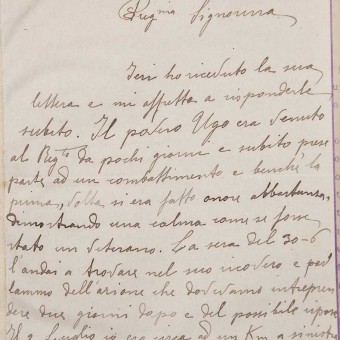 Preg.ma Signorina
Ieri ho ricevuto la sua
lettera e mi affretto a risponderle
subito. Il povero Ugo era venuto
al Regg.to da pochi giorni e subito prese
parte ad un combattimento e benchè la
prima volta si era fatto onore abbastanza,
dimostrando una calma come se fosse
stato un veterano. La sera del 30-6
l'andai a trovare nel suo ricovero e par
lammo dell'azione che dovevamo intrapren
dere due giorni dopo e del possibile riposo
Il 2 Luglio io ero circa ad un Km a sinistra